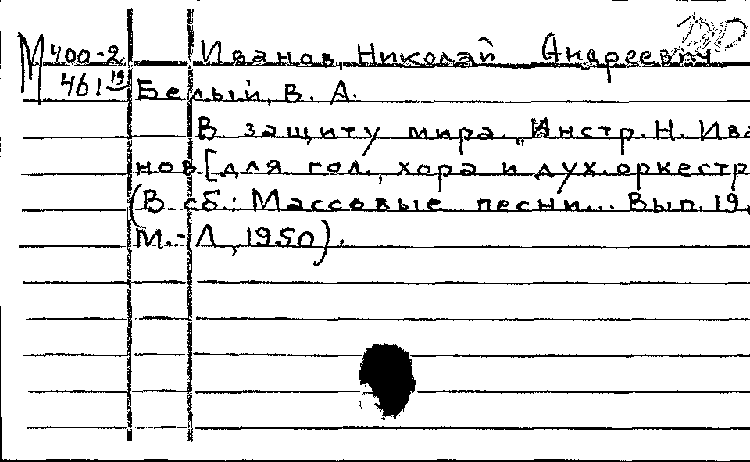 М 400-2 Иванов, Николай Андреевич
461 19 Белый, В. А.
В защиту мира. Инстр. Н. Ива
нов [для гол., хора и дух. оркестр
(В сб.: Массовые песни... Вып. 19.
М.-Л., 1950).